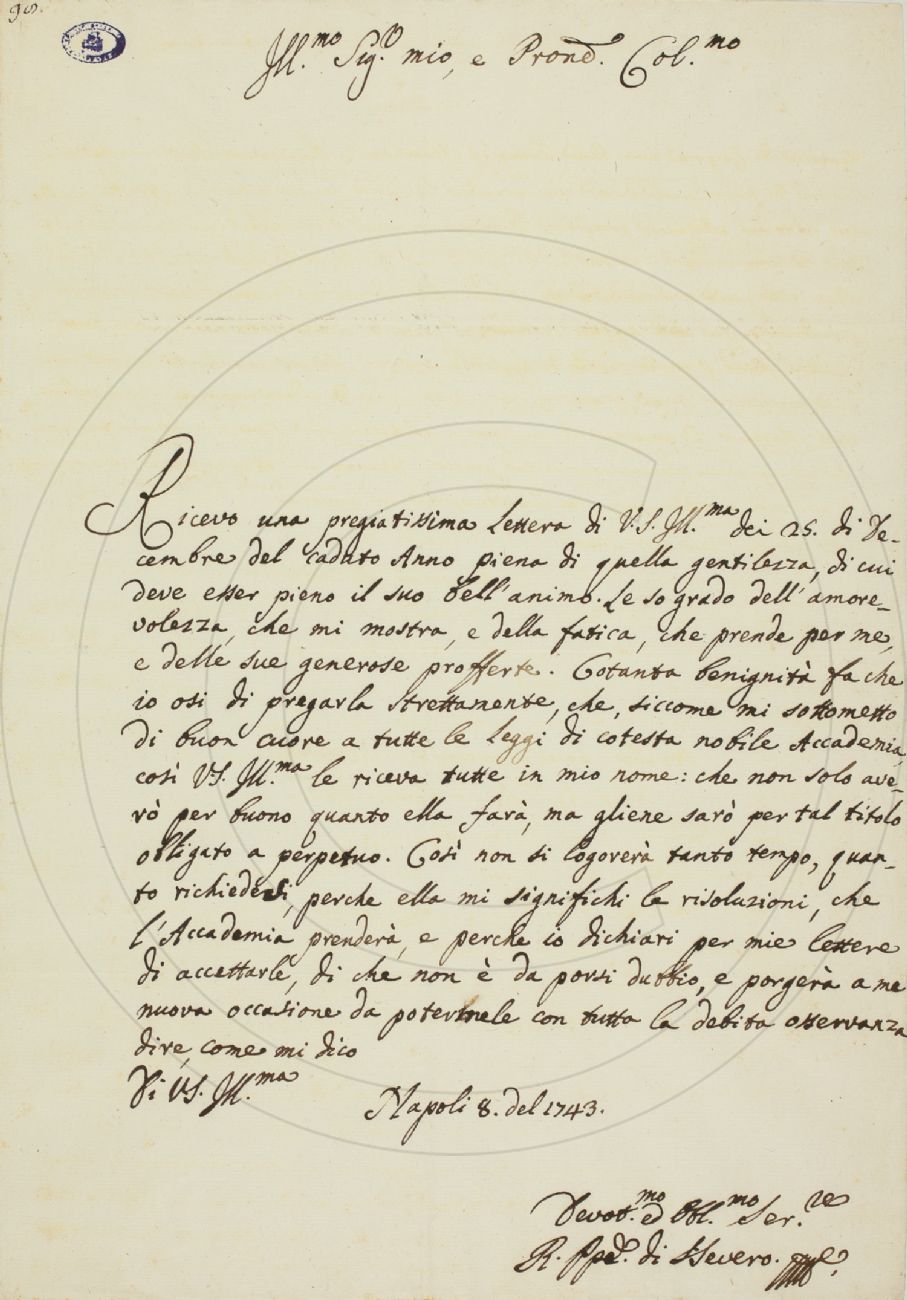 98.
Ill.mo Sig.r mio, e Pron.e Col.mo
Ricevo una pregiatissima Lettera di V.S. Ill.ma dei 25. di De-
cembre del caduto Anno piena di quella gentilezza, di cui
deve esser pieno il suo bell'animo. Le so grado dell'amore-
volezza, che mi mostra, e della fatica, che prende per me,
e delle sue generose profferte. Cotanta benignità fa che
io osi di pregarla strettamente, che, siccome mi sottometto
di buon cuore a tutte le Leggi di cotesta nobile Accademia,
così VS. Ill.ma le riceva tutte in mio nome: che non solo ave-
rò per buono quanto ella farà, ma gliene sarò per tal titolo
obbligato a perpetuo. Così non si logorerà tanto tempo, quan-
to richiedesi, perche ella mi significhi le risoluzioni, che
l'Accademia prenderà, e perche io dichiari per mie lettere
di accettarle, di che non è da porsi dubbio, e porgerà a me
nuova occasione da potermele con tutta la debita osservanza
dire, come mi dico
Di VS. Ill.ma
Napoli 8. del 1743.
Devot.mo ed Obl.mo Ser.re
R. Ppe. di SSevero.